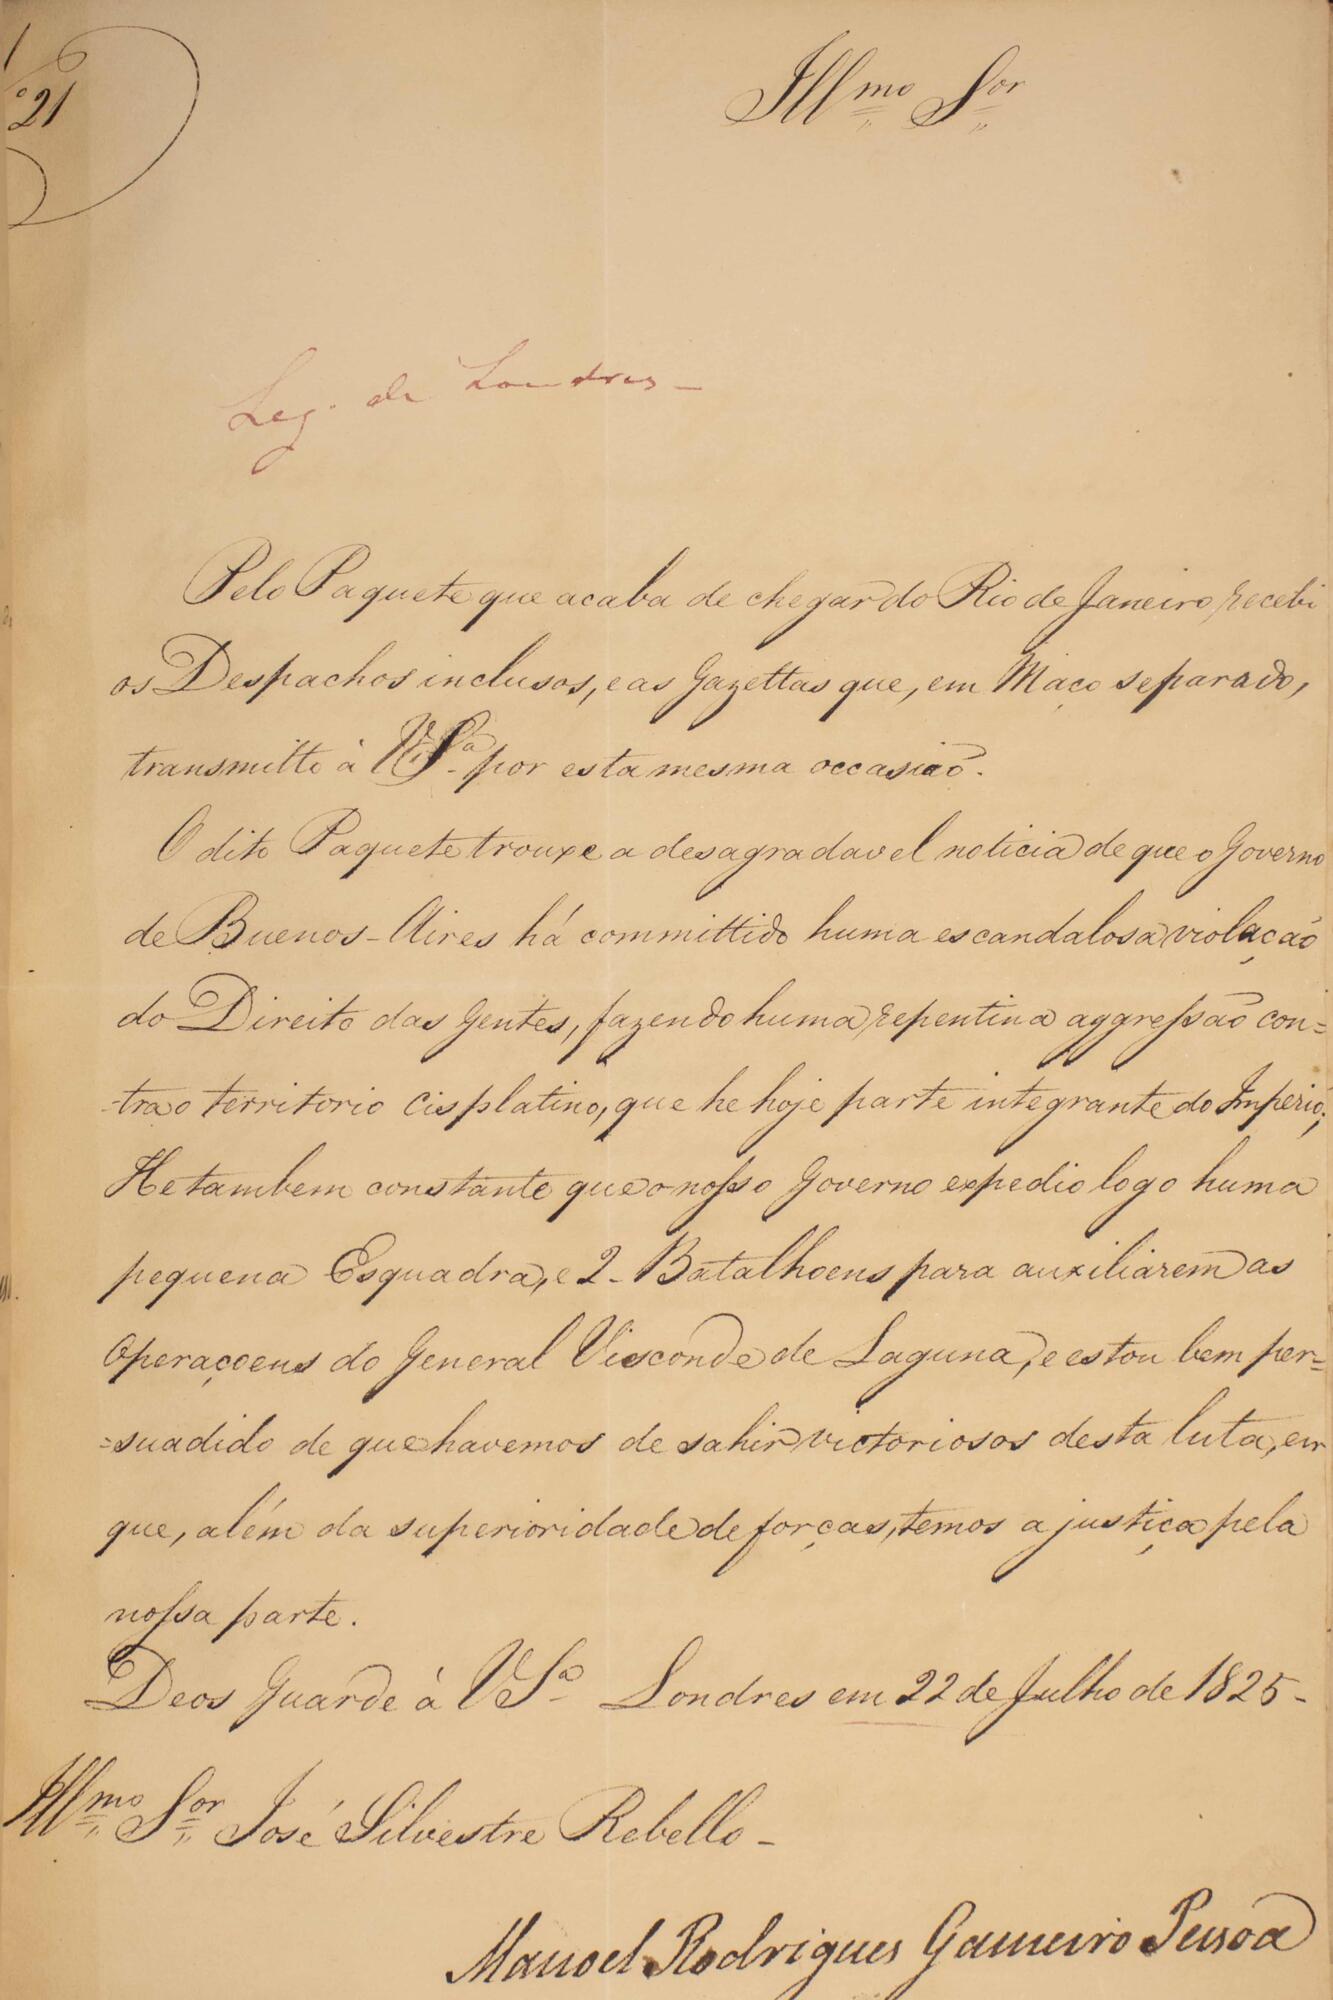 21
Illmo Sor
Leg. de Londres –
Pelo Paquete que acaba de chegar do Rio de Janeiro, recebi
os Despachos inclusos, e as Gazettas que, em Maço separado,
transmitto à VSa por esta mesma occasião.
O dito Paquete trouxe a desagradavel noticia de que o Governo
de Buenos-Aires há committido huma escandalosa violação
do Direito das Gentes, fazendo huma repentina aggressão con=
-tra o territorio Cisplatino, que he hoje parte integrante do Imperio;
He tambem constante que o nosso Governo expedio logo huma
pequena Esquadra, e 2 – Batalhoens para auxiliarem as
Operaçoens do General Visconde de Laguna, e estou bem per=
=suadido de que havemos de sahir victoriosos desta luta, em
que, além da superioridade de forças, temos a justiça pela
nossa parte.
Deos Guarde à VSa Londres em 22 de Julho de 1825 –
Illmo Sor José Silvestre Rebello –
Manoel Rodrigues Gameiro Pessoa